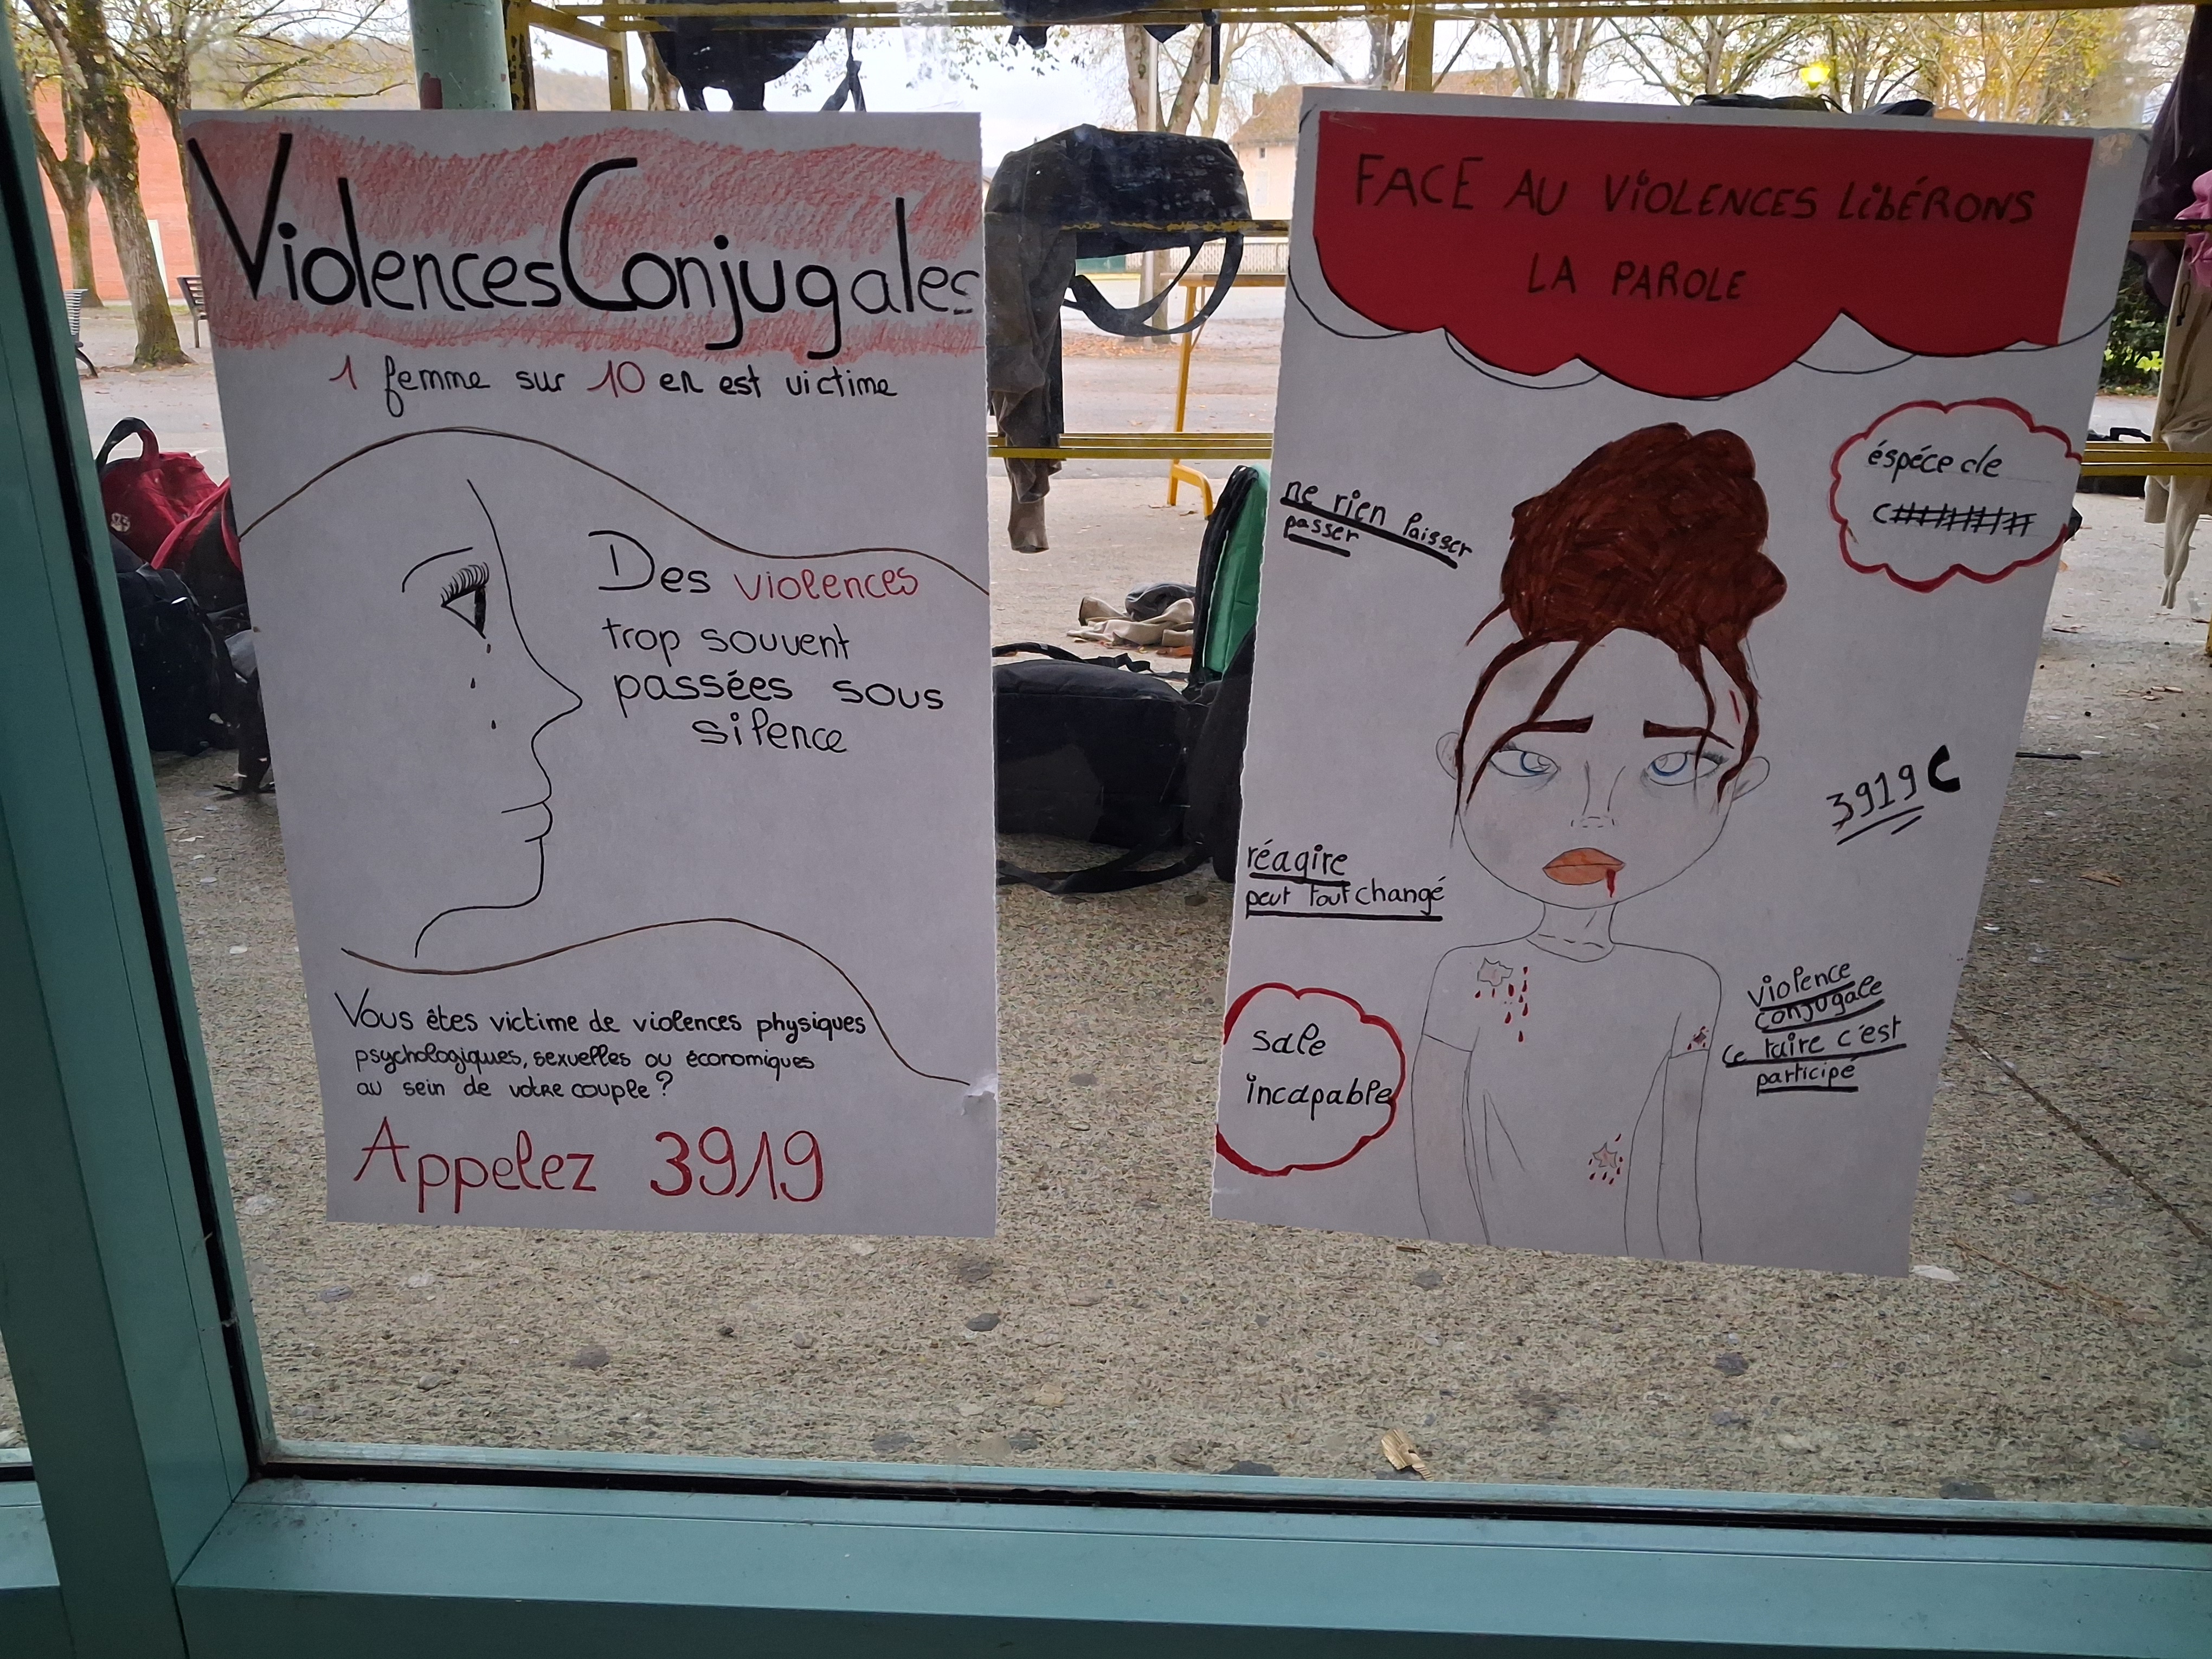 Violences Conjugales
1 femme sur 10 en est victime
Des violences
trop souvent
passées sous
silence
Vous êtes victime de violences physiques
psychologiques, sexuelles ou économiques
au sein de votre couple ?
Appelez 3919
FACE AU VIOLENCES LIBÉRONS
LA PAROLE
éspéce de
c########
ne rien laisser
passer
3919
réagire
peut tout changé
violence
conjugale
ce taire c'est
participé
sale
incapable